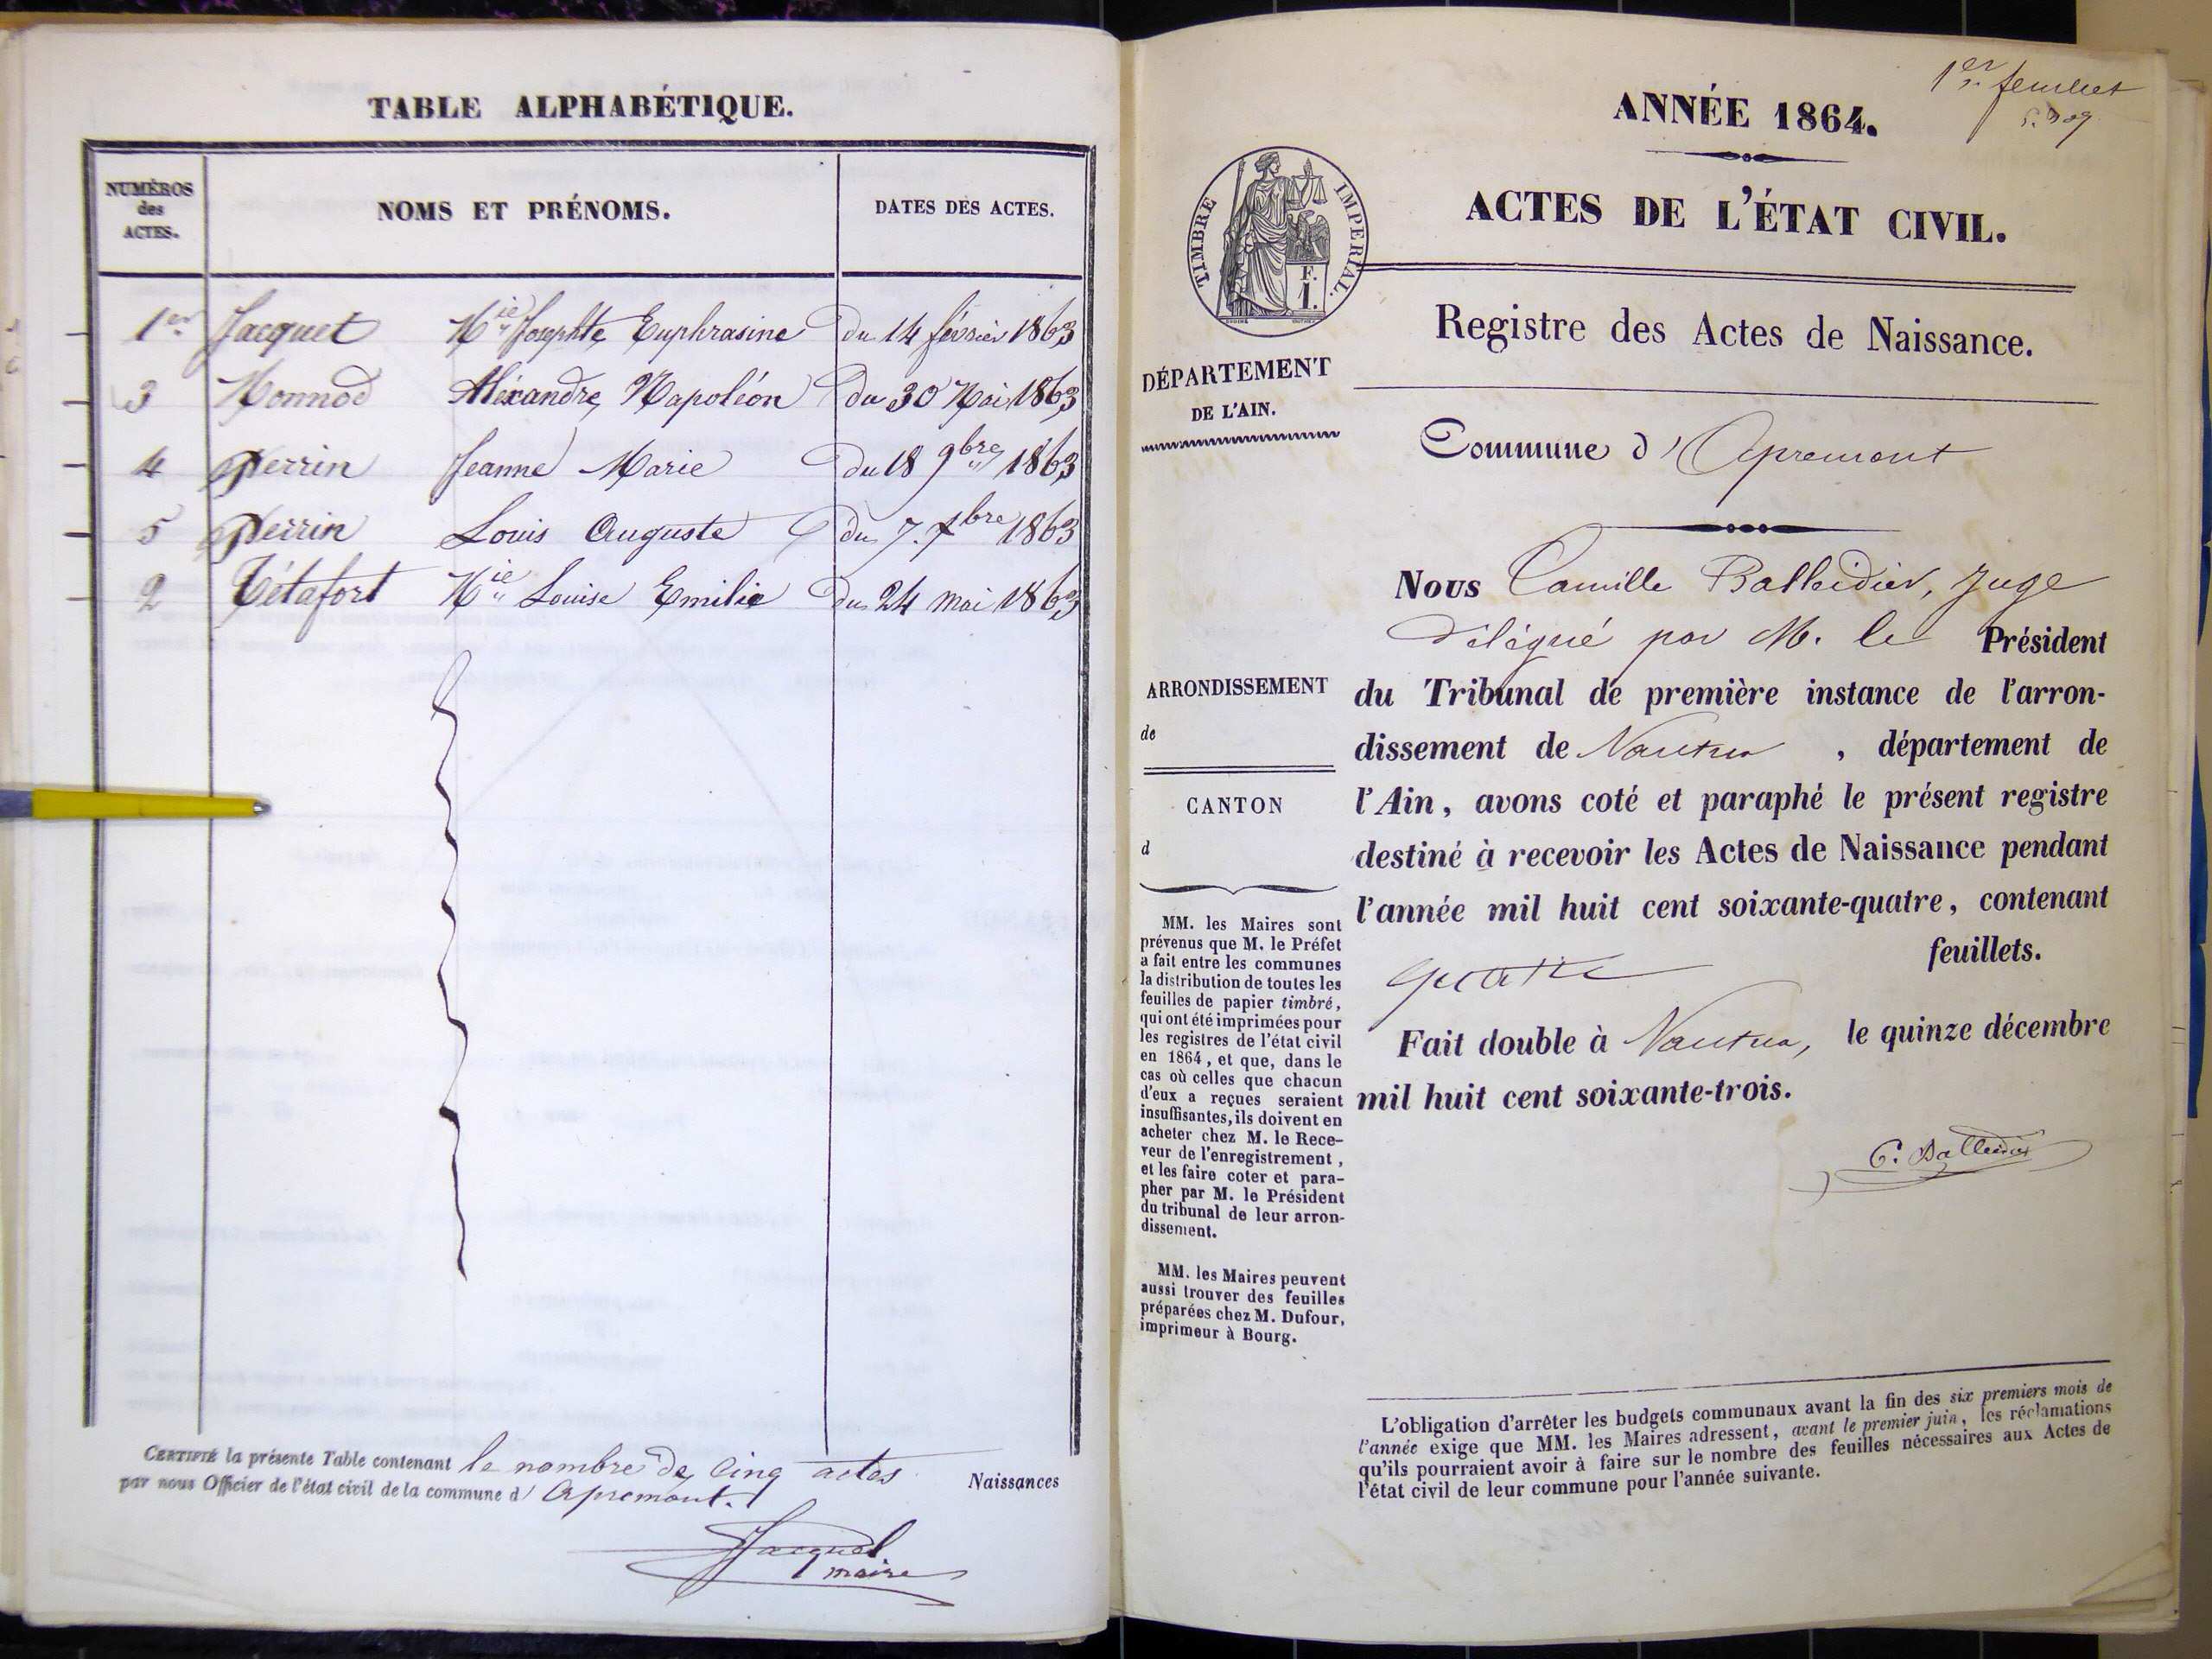 TABLE ALPHABÉTIQUE.
NUMÉROS des ACTES.
NOMS ET PRÉNOMS.
DATES DES ACTES.
1er Jacquet Mie Josephte Euphrasine Du 14 février 1863
3 Monnod Aléxandre Napoléon Du 30 Mai 1863
4 Perrin Jeanne Marie Du 18 9bre 1863
5 Perrin Louis Auguste du 7 Xbre 1863
2 Tétafort Mie Louise Emilie Du 24 mai 1863
CERTIFIÉ la présente Table contenant le nombre de Cinq actes
par nous Officier de l'état civil de la commune d' Apremont.
Naissances
Jacquet
maire
1er feuillet
ANNÉE 1864.
ACTES DE L'ÉTAT CIVIL.
TIMBRE IMPÉRIAL.
F.
1.
Registre des Actes de Naissance.
DÉPARTEMENT
DE L'AIN.
Commune d'Apremont
Nous Camille Balleidier, Juge
délégué par M. le Président
du Tribunal de première instance de l'arron-
dissement de Nantua, département de
l'Ain, avons coté et paraphé le présent registre
destiné à recevoir les Actes de Naissance pendant
l'année mil huit cent soixante-quatre, contenant
quatre feuillets.
Fait double à Nantua, le quinze décembre
mil huit cent soixante-trois.
C. Balleidier
ARRONDISSEMENT
de
CANTON
d
MM. les Maires sont
prévenus que M. le Préfet
a fait entre les communes
la distribution de toutes les
feuilles de papier timbré,
qui ont été imprimées pour
les registres de l'état civil
en 1864, et que, dans le
cas où celles que chacun
d'eux a reçues seraient
insuffisantes, ils doivent en
acheter chez M. le Rece-
veur de l'enregistrement,
et les faire coter et para-
pher par M. le Président
du tribunal de leur arron-
dissement.
MM. les Maires peuvent
aussi trouver des feuilles
préparées chez M. Dufour,
imprimeur à Bourg.
L'obligation d'arrêter les budgets communaux avant la fin des six premiers mois de
l'année exige que MM. les Maires adressent, avant le premier juin, les réclamations
qu'ils pourraient avoir à faire sur le nombre des feuilles nécessaires aux Actes de
l'état civil de leur commune pour l'année suivante.